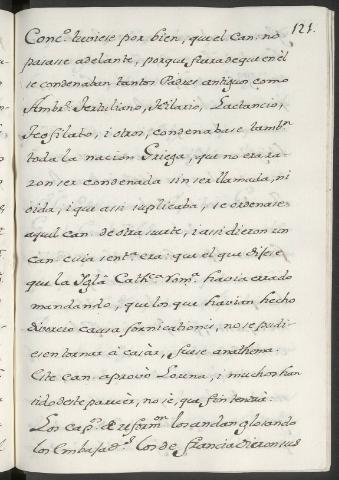 121.
Conc.º tuviese por bien, que el Can: no
pasase adelante, porque fuera de que en èl
se condenaban tantos Padres antiguos como
Ambr.º Tertuliano, Hilario, Lactancio,
Teofilato, i otros, condenabase tambⁿ
toda la nacion Griega, que no era ra-
zon ser condenada sin ser llamada, ni
oida, i que assi suplicaba, se ordenase
aquel can. de otra suerte, i assi dieron un
can. cuia sentª. era: que el que dijese
que la Yglª Cathᶜª Romª. havia errado
mandando, que los que havian hecho
divorcio causa fornicationis, no se pudi-
esen tornar à casàr, fuese anathema.
Este can. aprovò, i muchos han
sido deste parecèr, no sè, que fin tendra.
Los cap.º de reformᵒⁿ los andan glosando
los Embajad.ˢ los de francia dieron sus